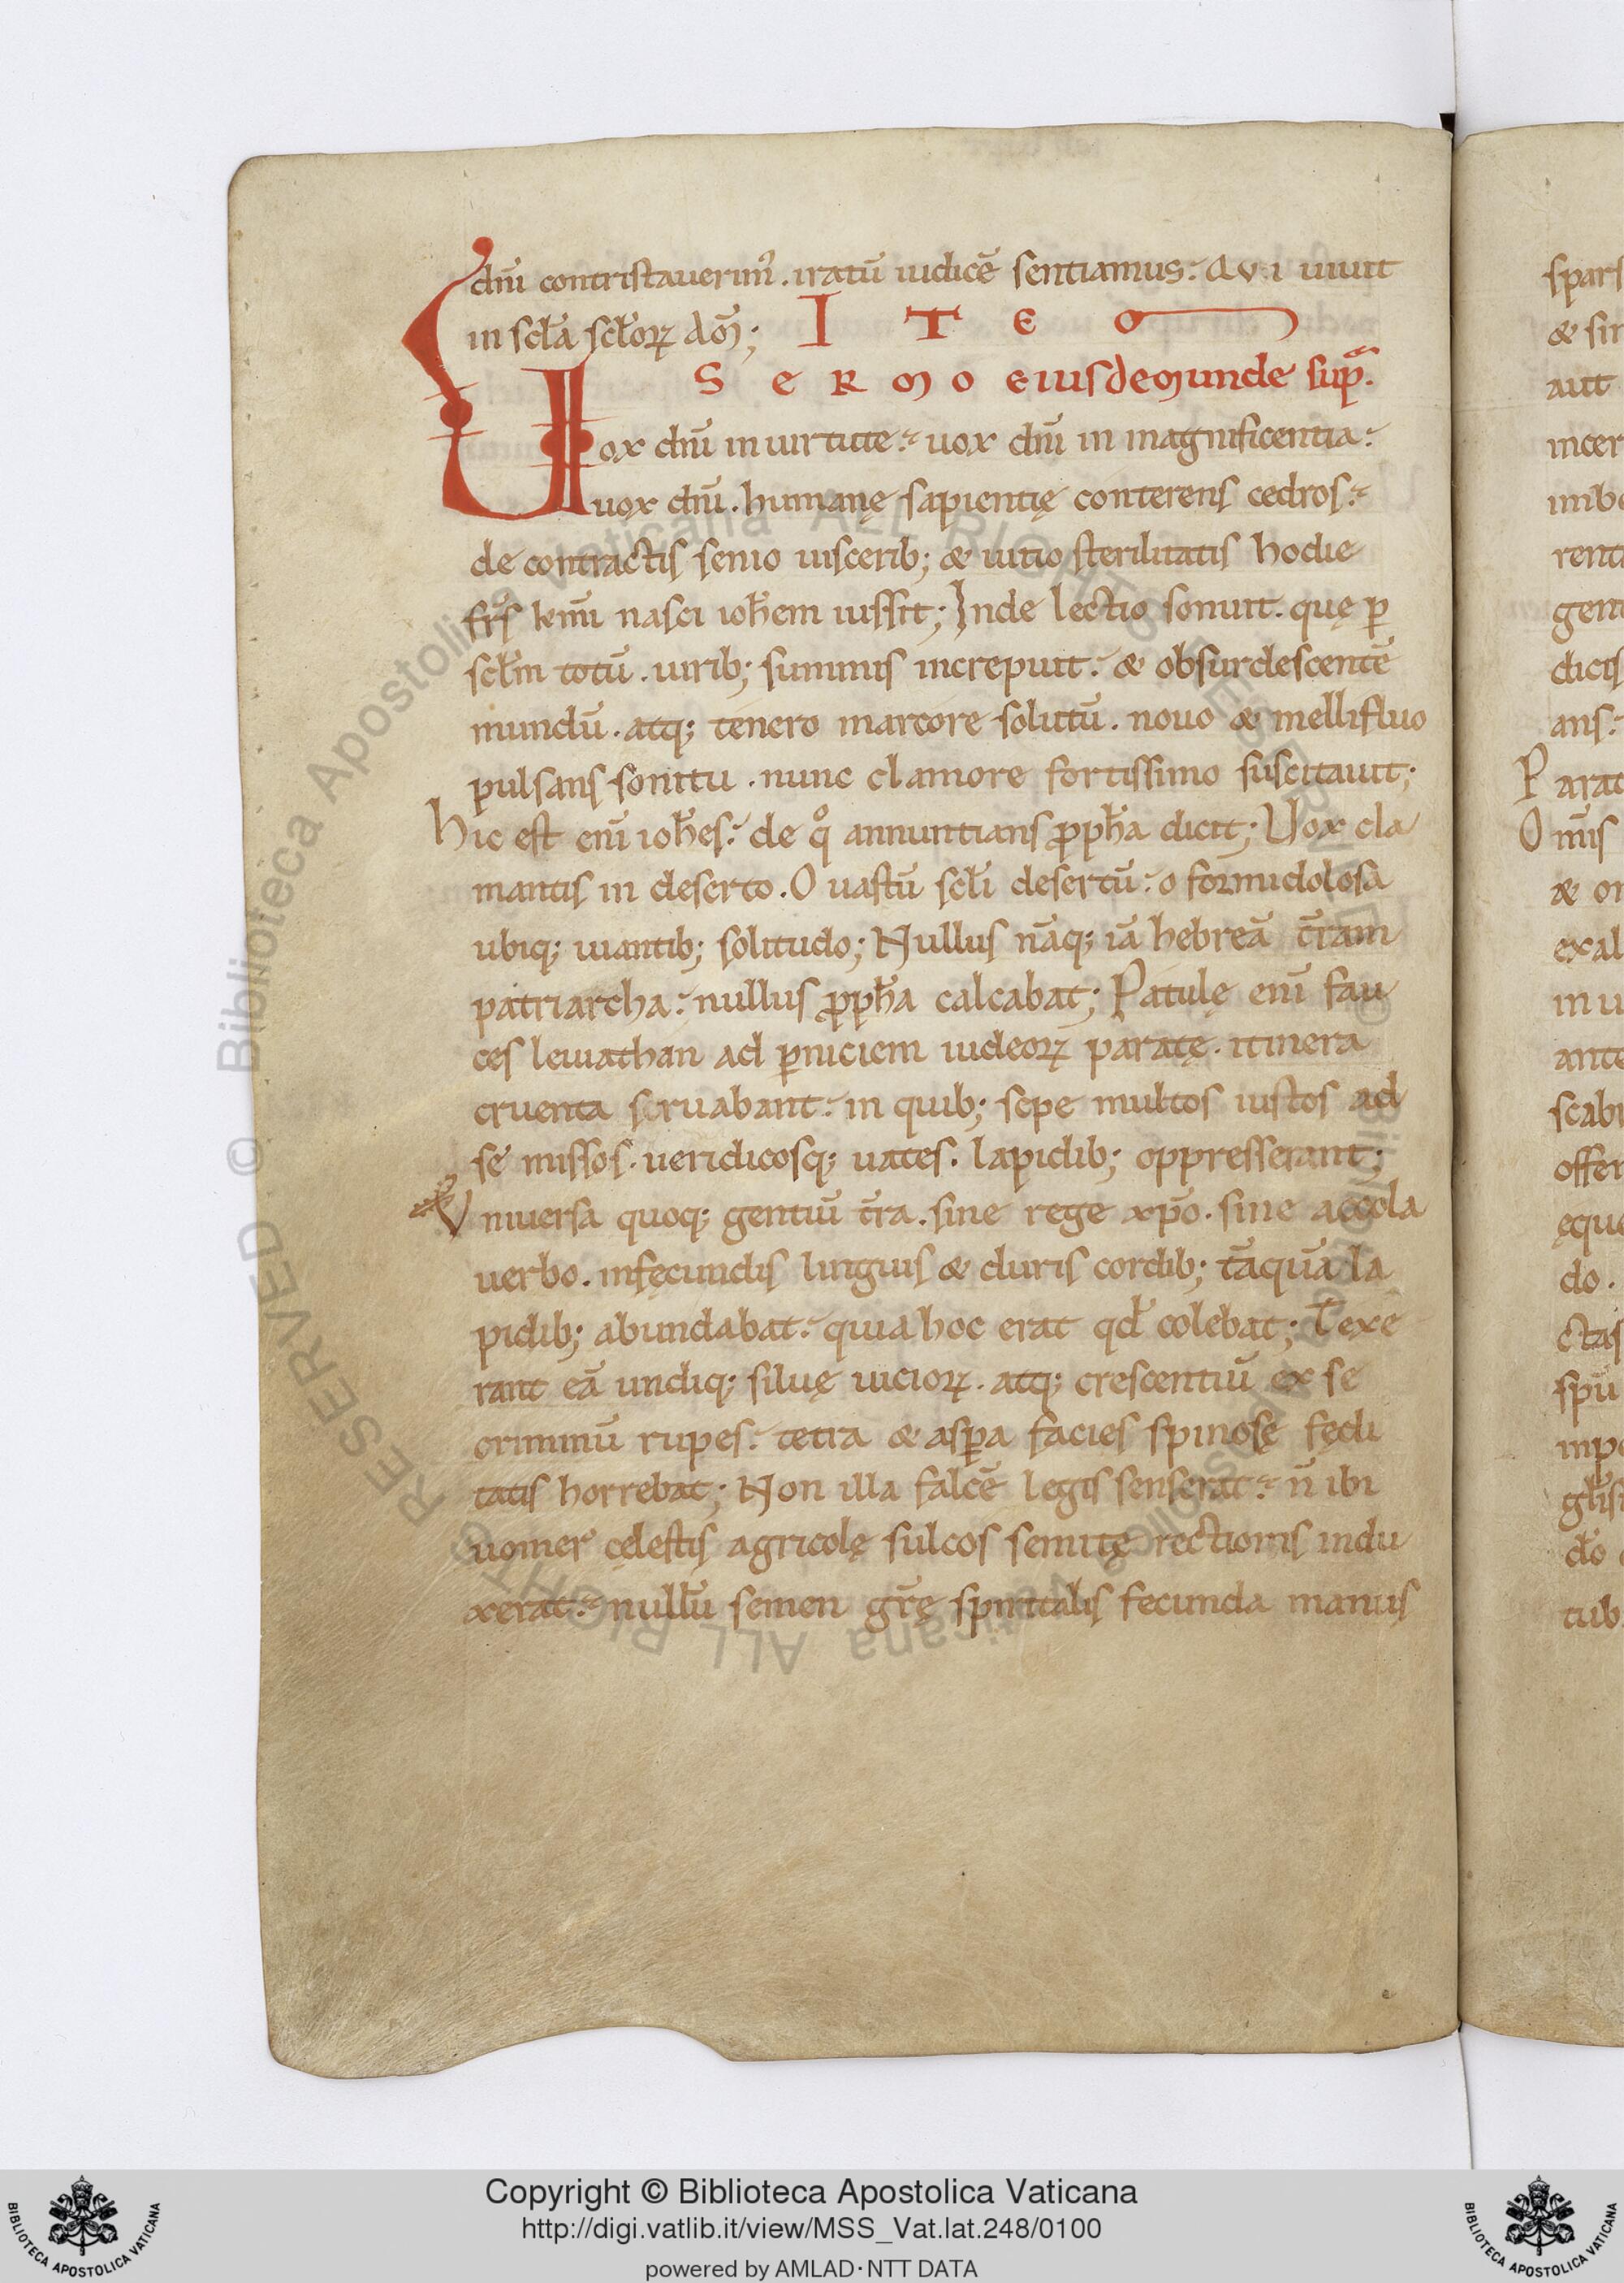 dñi contristauerim᾽. iratũ iudicẽ sentiamus. Qui uiuit
in scl̃a scl̃oꝝ am̃;
I T E M
S E R M O eiusdem unde sup̃.
Vox dñi in uirtute. uox dñi in magnificentia.
uox dñi. humanę sapientię conterens cedros.
de contractis senio uiscerib; & uitio sterilitatis hodie
fr̃s km̃i nasci ioh̃em iussit; Inde lectio sonuit. quę ꝑ
scl̃m totũ. uirib; summis increpuit. & obsurdescentẽ
mundũ. atq; tenero marcore solutũ. nouo & mellifluo
pulsans sonitu. nunc clamore fortissimo suscitauit;
Hic est enĩ ioh̃es. de qͦ annuntians ꝓph̃a dicit; Vox cla
mantis in deserto. O uastũ scl̃i desertũ. o formidolosa
ubiq; uiantib; solitudo; Nullus nãq; iã hebreã t̃ram
patriarcha. nullus ꝓph̃a calcabat; Patulę enĩ fau
ces leuiathan ad ꝑniciem iudeoꝝ paratę. itinera
cruenta seruabant. in quib; sepe multos iustos ad
se missos. ueridicosq; uates. lapidib; oppresserant;
Vniuersa quoq; gentiũ t̃ra. sine rege xp̃o. sine accola
uerbo. infęcundis linguis & duris cordib; tãquã la
pidib; abundabat. quia hoc erat qd̃ colebat; Texe
rant eã undiq; siluę uicioꝝ. atq; crescentiũ ex se
criminũ rupes. tetra & asꝑa facies spinosę fędi
tatis horrebat; Non illa falcẽ legis senserat. ñ ibi
uomer cęlestis agricolę sulcos semitę rectioris indu
xerat. nullũ semen gr̃ę spiritalis fecunda manus
spars
& sin
aut
incer
imbe
rent
gent
dicis
ans.
Parat
Om̃is
& or
exal
in u
ante
scabr
offer
ęque
do.
ctas
spũ
inpe
gl̃is
dõ
tub
© Biblioteca Apostolica Vaticana ALL RIGHTS RESERVED
Copyright © Biblioteca Apostolica Vaticana
http://digi.vatlib.it/view/MSS_Vat.lat.248/0100
powered by AMLAD·NTT DATA
BIBLIOTECA APOSTOLICA VATICANA
BIBLIOTECA APOSTOLICA VATICANA